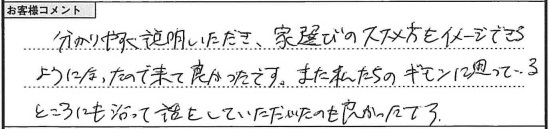 お客様コメント
分かりやすく説明いただき、家選びのススメ方をイメージできる
ようになったので来て良かったです。また私たちのギモンに思って‥る
ところにも沿って話をしていただいたのも良かったです。